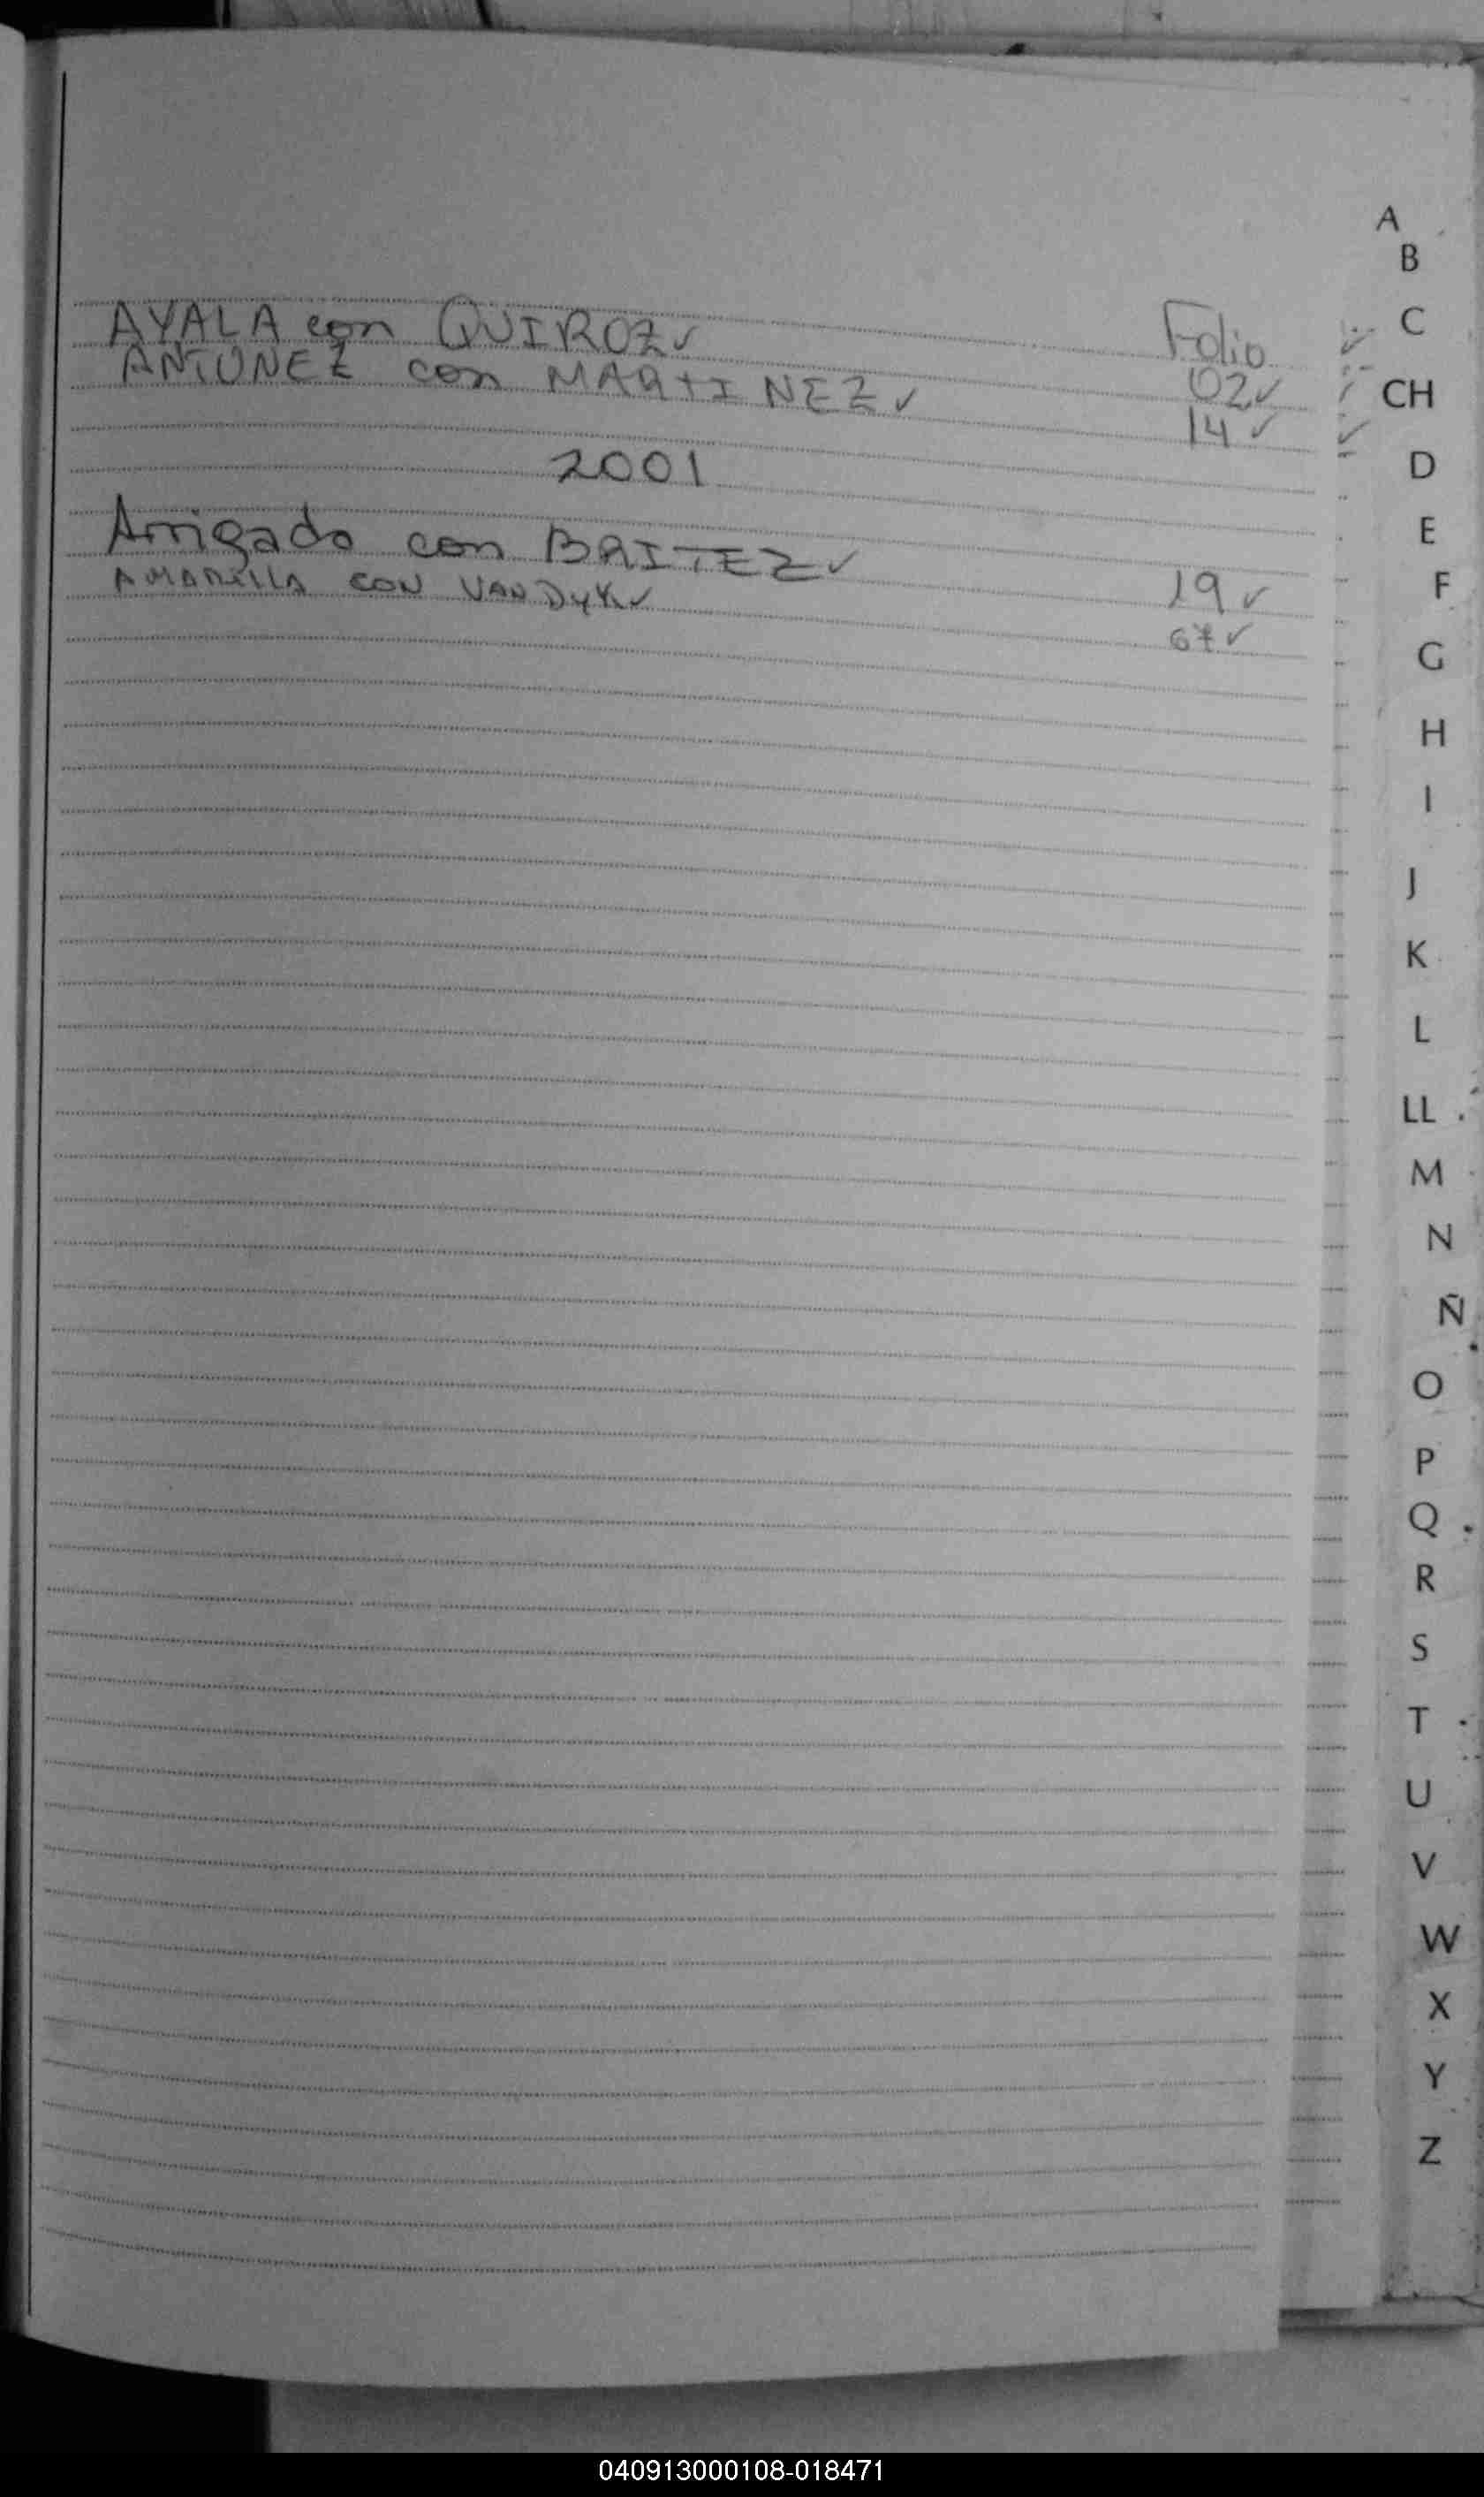 Folio
AYALA con QUIROZ ✓ 02 ✓
ANTUNEZ con MARTINEZ ✓ 14 ✓
2001
Arrigada con BRITEZ ✓ 19 ✓
AMARILLA CON VAN DYK ✓ 67 ✓
A
B
C
CH
D
E
F
G
H
I
J
K
L
LL
M
N
Ñ
O
P
Q
R
S
T
U
V
W
X
Y
Z
040913000108-018471